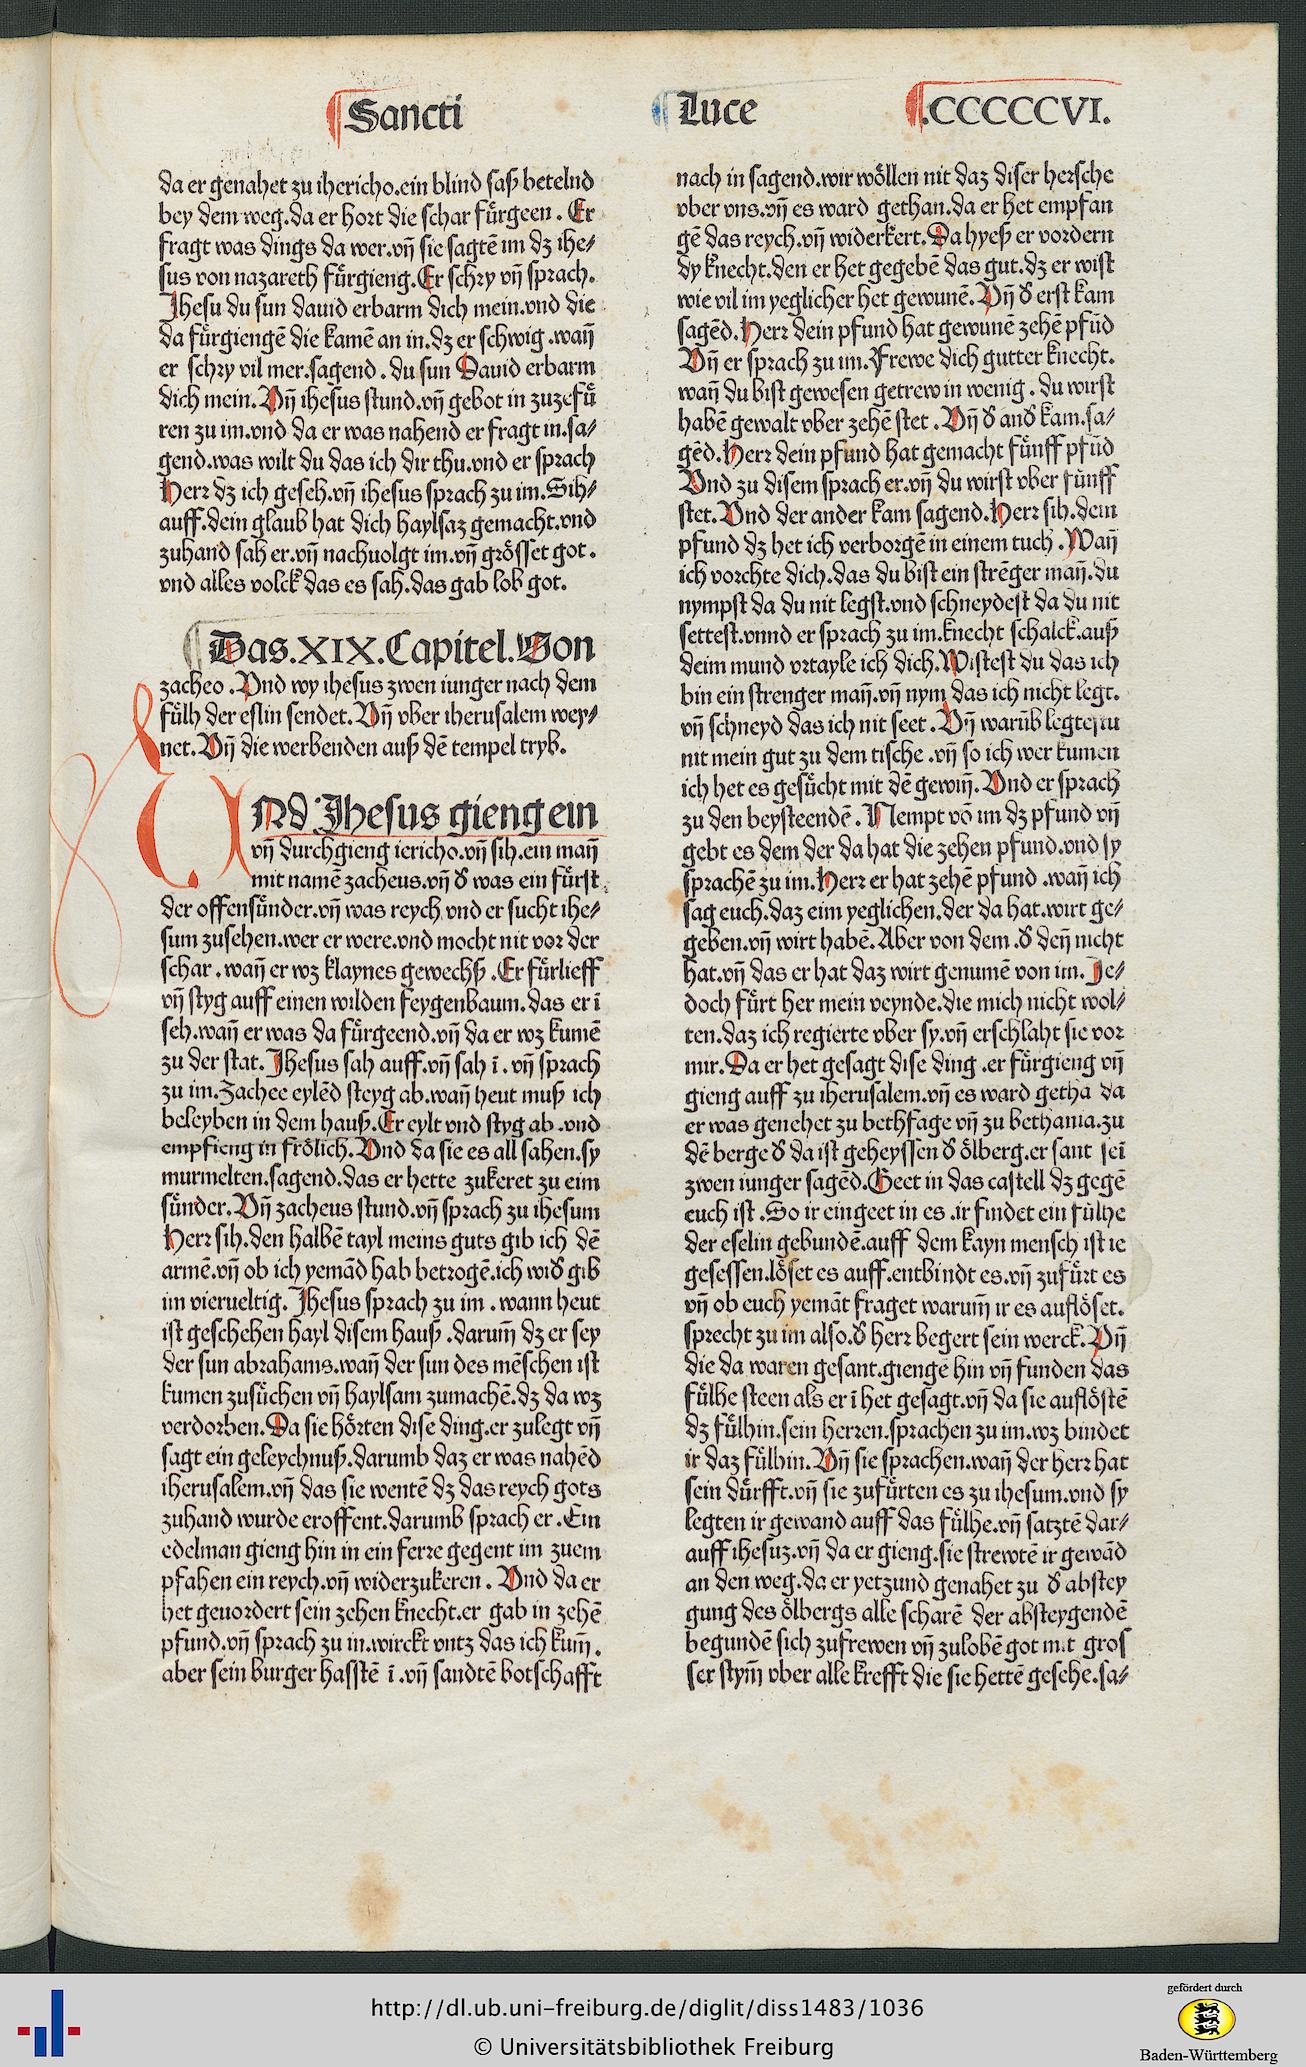 Sancti
Luce
.CCCCCVI.
da er genahet zu ihericho.ein blind saß betelnd
bey dem weg.da er hort die schar fuͤrgeen. Er
fragt was dings da wer.vñ sie sagtē im dz ihe⸗
sus von nazareth fuͤrgieng.Er schry vñ sprach.
Jhesu du sun dauid erbarm dich mein.vnd die
da fuͤrgiengē die kamē an in.dz er schwig.wañ
er schry vil mer.sagend. du sun Dauid erbarm
dich mein. Vñ ihesus stund.vñ gebot in zuzefuͤ
ren zu im.vnd da er was nahend er fragt in.sa⸗
gend.was wilt du das ich dir thu.vnd er sprach
Herr dz ich geseh.vñ ihesus sprach zu im.Sih⸗
auff.dein glaub hat dich haylsaz gemacht.vnd
zuhand sah er.vñ nachuolgt im.vñ groͤsset got.
vnd alles volck das es sah.das gab lob got.
Das.XIX.Capitel.Von
zacheo. Vnd wy ihesus zwen iunger nach dem
fuͤlh der eslin sendet. Vñ vber iherusalem wey⸗
net. Vñ die werbenden auß dē tempel tryb.
VNd Jhesus gieng ein
vñ durchgieng iericho.vñ sih.ein mañ
mit namē zacheus.vñ ð was ein fuͤrst
der offensuͤnder.vñ was reych vnd er sucht ihe⸗
sum zusehen.wer er were.vnd mocht nit vor der
schar. wañ er wz klaynes gewechß.Er fuͤrlieff
vñ styg auff einen wilden feygenbaum.das er ī
seh.wañ er was da fuͤrgeend.vñ da er wz kumē
zu der stat. Jhesus sah auff.vñ sah ī. vñ sprach
zu im.Zachee eylēd steyg ab.wañ heut muß ich
beleyben in dem hauß.Er eylt vnd styg ab.vnd
empfieng in froͤlich. Vnd da sie es all sahen.sy
murmelten.sagend.das er hette zukeret zu eim
suͤnder. Vñ zacheus stund.vñ sprach zu ihesum
Herr sih.den halbē tayl meins guts gib ich dē
armē.vñ ob ich yemād hab betrogē.ich wið gib
im vierueltig. Jhesus sprach zu im. wann heut
ist geschehen hayl disem hauß.darum̄ dz er sey
der sun abrahams.wañ der sun des mēschen ist
kumen zusuͤchen vñ haylsam zumachē.dz da wz
verdorben. Da sie hoͤrten dise ding.er zulegt vñ
sagt ein geleychnuß.darumb daz er was nahēd
iherusalem.vñ das sie wentē dz das reych gots
zuhand wurde eroffent.darumb sprach er. Ein
edelman gieng hin in ein ferre gegent im zuem
pfahen ein reych.vñ widerzukeren. Vnd da er
het geuordert sein zehen knecht.er gab in zehē
pfund.vñ sprach zu in.wirckt vntz das ich kum̄.
aber sein burger hasstē ī.vñ sandtē botschafft
nach in sagend.wir woͤllen nit daz diser hersche
vber vns.vñ es ward gethan.da er het empfan
gē das reych.vñ widerkert. Da hyeß er vordern
dy knecht.den er het gegebē das gut.dz er wist
wie vil im yeglicher het gewunē. Vñ ð erst kam
sagēd. Herr dein pfund hat gewunē zehē pfūd
Vñ er sprach zu im.Frewe dich gutter knecht.
wañ du bist gewesen getrew in wenig. du wirst
habē gewalt vber zehē stet. Vñ ð anð kam.sa⸗
gēd. Herr dein pfund hat gemacht fuͤnff pfūd
Vnd zu disem sprach er.vñ du wirst vber fuͤnff
stet. Vnd der ander kam sagend.Herr sih.dein
pfund dz het ich verborgē in einem tuch. Wañ
ich vorchte dich.das du bist ein strēger mañ.du
nympst da du nit legst.vnd schneydest da du nit
settest.vnnd er sprach zu im.knecht schalck.auß
deim mund vrtayle ich dich.Wistest du das ich
bin ein strenger mañ.vñ nym das ich nicht legt.
vñ schneyd das ich nit seet. Vñ warūb legtestu
nit mein gut zu dem tische.vñ so ich wer kumen
ich het es gesuͤcht mit dē gewiñ. Vnd er sprach
zu den beysteendē. Nempt vō im dz pfund vñ
gebt es dem der da hat die zehen pfund.vnd sy
sprachē zu im.Herr er hat zehē pfund.wañ ich
sag euch.daz eim yeglichen.der da hat.wirt ge⸗
geben.vñ wirt habē.Aber von dem.ð deñ nicht
hat.vñ das er hat daz wirt genumē von im. Je⸗
doch fuͤrt her mein veynde.die mich nicht wol⸗
ten.daz ich regierte vber sy.vñ erschlaht sie vor
mir. Da er het gesagt dise ding.er fuͤrgieng vñ
gieng auff zu iherusalem.vñ es ward getha da
er was genehet zu bethfage vñ zu bethania.zu
dē berge ð da ist geheyssen ð oͤlberg.er sant seī
zwen iunger sagēd.Geet in das castell dz gegē
euch ist.So ir eingeet in es.ir findet ein fuͤlhe
der eselin gebundē.auff dem kayn mensch ist ie
gesessen.loͤset es auff.entbindt es.vñ zufuͤrt es
vñ ob euch yemāt fraget warum̄ ir es aufloͤset.
sprecht zu im also.ð herr begert sein werck. Vñ
die da waren gesant.giengē hin vñ funden das
fuͤlhe steen als er ī het gesagt.vñ da sie aufloͤstē
dz fuͤlhin.sein herren.sprachen zu im.wz bindet
ir daz fuͤlhin. Vñ sie sprachen.wañ der herr hat
sein duͤrfft.vñ sie zufuͤrten es zu ihesum.vnd sy
legten ir gewand auff das fuͤlhe.vñ satztē dar⸗
auff ihesuz.vñ da er gieng.sie strewtē ir gewād
an den weg.da er yetzund genahet zu ð abstey
gung des oͤlbergs alle scharē der absteygendē
begundē sich zufrewen vñ zulobē got mit gros
ser stym̄ vber alle krefft die sie hettē gesehe.sa⸗
http://dl.ub.uni-freiburg.de/diglit/diss1483/1036
© Universitätsbibliothek Freiburg
gefördert durch
Baden-Württemberg